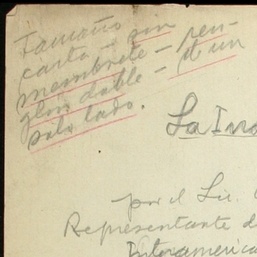 Tamaño
carta - sin
membrete - ren-
glón doble - de un
solo lado.
La
por el Lic.
Representante d
Interamerica